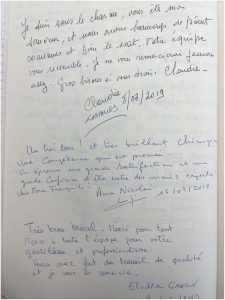 Je suis sous le charme, vous été mon
sauveur, et nous avons beaucoup de point
communs et Dieu le sait, votre équipe
vous ressemble. Je ne vous remercierai jamais
assez. Gros bisous si vous Claudia.
Claudia
8/08/2019
Un très bon! et très brillant Chirurgien
Une Compétence qui est prouvée!
On éprouve une grande Satisfaction et une
grande Confiance! être entre des mains expertes
Anne Nicolini 16/08/2019
Très beau travail. Merci pour tout
Merci à toute l'équipe pour votre
gentillesse et professionnalisme.
Vous avez fait du travail de qualité
et je vous en remercie.
Elodie